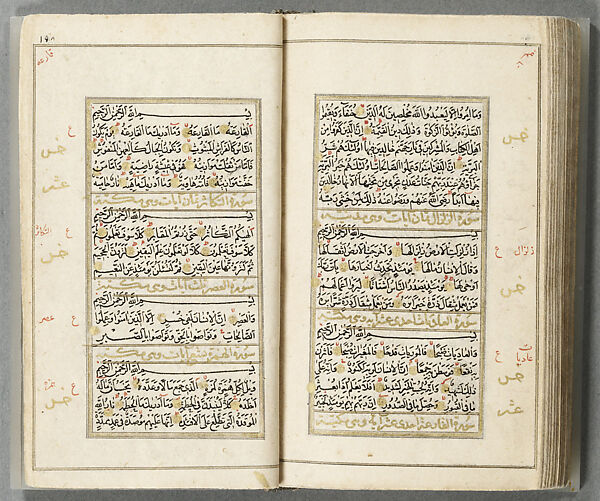 وما امروا الا ليعبدوا الله مخلصين له الدين حنفاء ويقيموا
الصلوة ويؤتوا الزكوة وذلك دين القيمة ان الذين كفروا من
اهل الكتاب والمشركين في نار جهنم خالدين فيها اولئك هم شر
البرية ان الذين امنوا وعملوا الصالحات اولئك هم خير البرية
جزاؤهم عند ربهم جنات عدن تجري من تحتها الانهار خالدين
فيها ابدا رضي الله عنهم ورضوا عنه ذلك لمن خشي ربه
سورة الزلزال ثمان ايات وهي مدنية
بسم الله الرحمن الرحيم
اذا زلزلت الارض زلزالها واخرجت الارض اثقالها
وقال الانسان مالها يومئذ تحدث اخبارها بان ربك
اوحى لها يومئذ يصدر الناس اشتاتا ليروا اعمالهم فمن
يعمل مثقال ذرة خيرا يره ومن يعمل مثقال ذرة شرا يره
سورة العاديات احدى عشر اية وهي مكية
بسم الله الرحمن الرحيم
والعاديات ضبحا فالموريات قدحا فالمغيرات صبحا فاثرن
به نقعا فوسطن به جمعا ان الانسان لربه لكنود وانه على
ذلك لشهيد وانه لحب الخير لشديد افلا يعلم اذا بعثر
ما في القبور وحصل ما في الصدور ان ربهم بهم يومئذ لخبير
سورة القارعة احدى عشر اية وهي مكية
زلزال
ع
عاديات
قارعه
بسم الله الرحمن الرحيم
القارعة ما القارعة وما ادريك ما القارعة يوم يكون
الناس كالفراش المبثوث وتكون الجبال كالعهن المنفوش
فاما من ثقلت موازينه فهو في عيشة راضية واما من
خفت موازينه فامه هاوية وما ادريك ماهيه نار حامية
سورة التكاثر ثمان ايات وهي مكية
بسم الله الرحمن الرحيم
الهيكم التكاثر حتى زرتم المقابر كلا سوف تعلمون ثم
كلا سوف تعلمون كلا لو تعلمون علم اليقين لترون الجحيم
ثم لترونها عين اليقين ثم لتسئلن يومئذ عن النعيم
سورة العصر ثلث ايات وهي مكية
بسم الله الرحمن الرحيم
والعصر ان الانسان لفي خسر الا الذين امنوا وعملوا
الصالحات وتواصوا بالحق وتواصوا بالصبر
سورة الهمزة تسع ايات وهي مكية
بسم الله الرحمن الرحيم
ويل لكل همزة لمزة الذي جمع مالا وعدده يحسب ان ماله
اخلده كلا لينبذن في الحطمة وما ادريك ما الحطمة نار الله
الموقدة التي تطلع على الافئدة انها عليهم مؤصدة في عمد ممددة
ع
التكاثر
ع
عصر
ع
همزه
ع